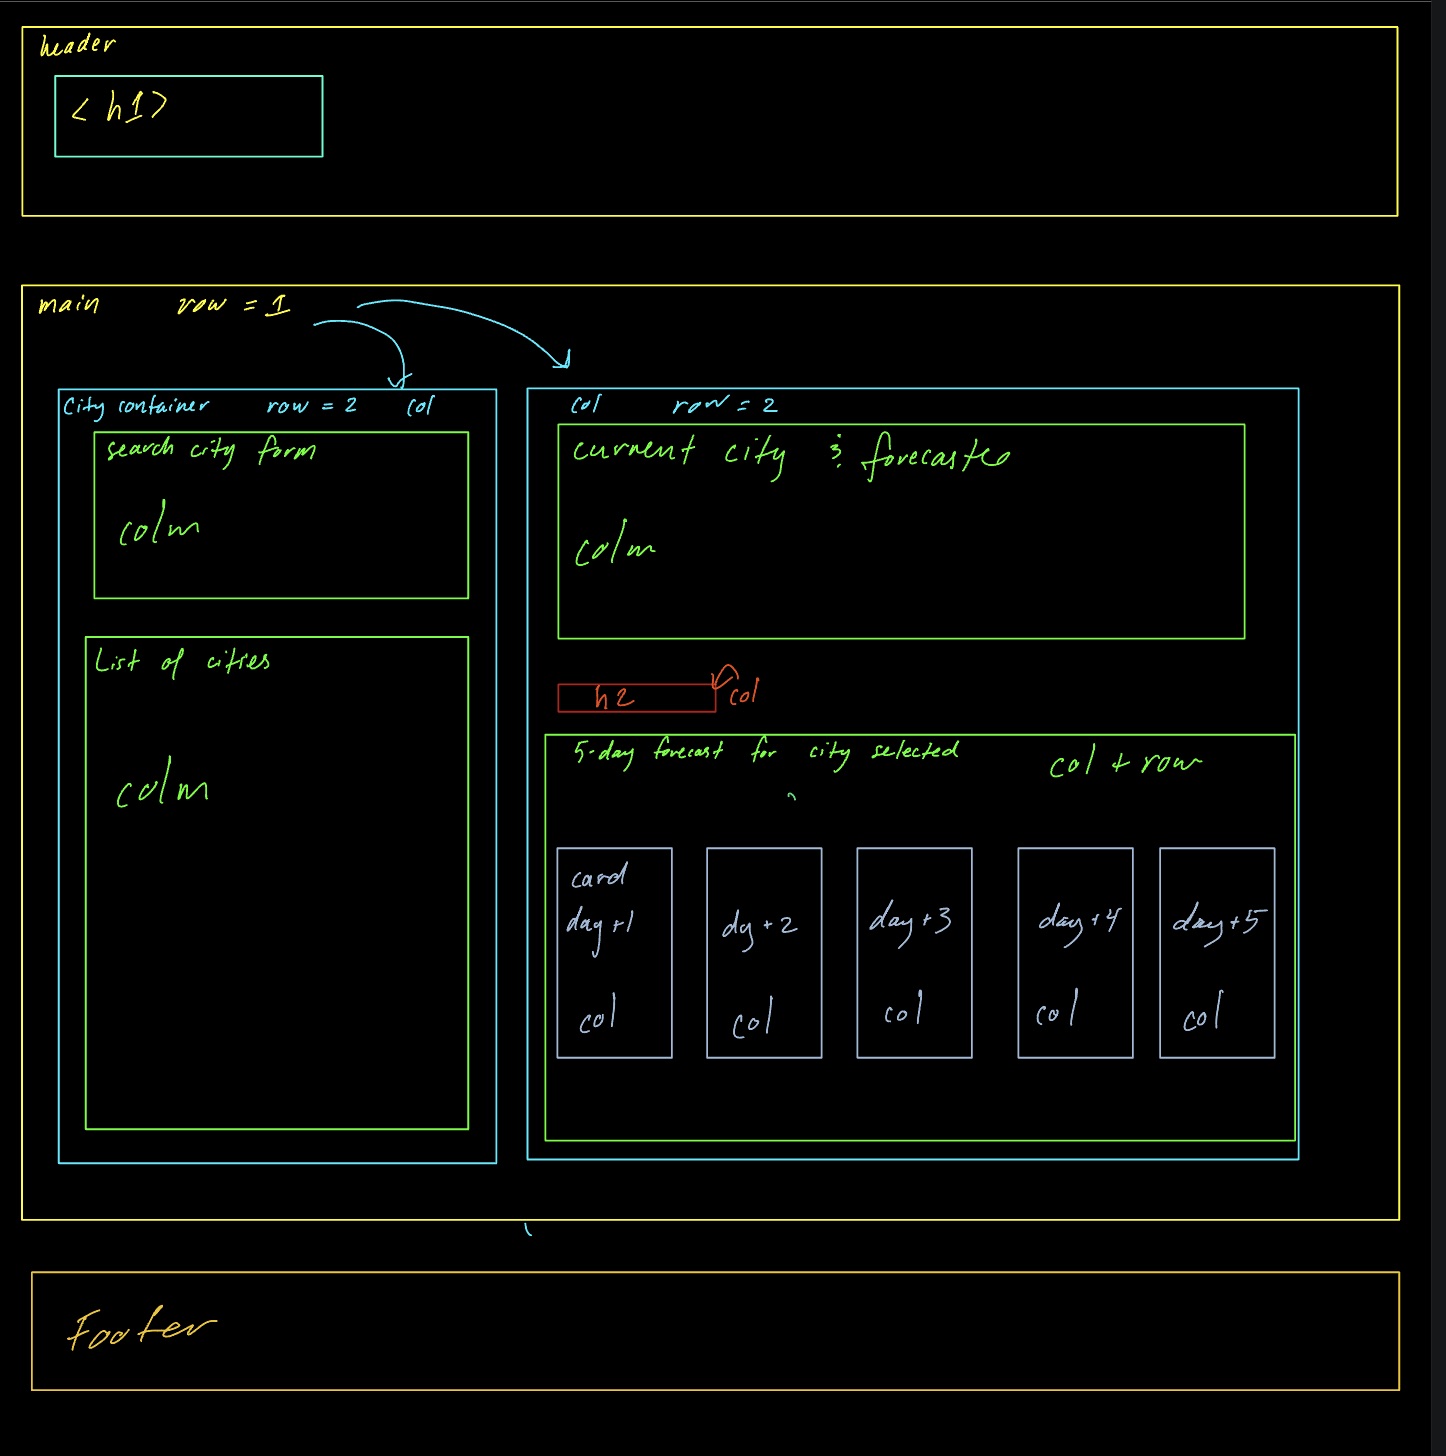 header
<h1>
main row = 1
City container row = 2 col
search city form
colm
List of cities
colm
col row = 2
current city & forecast
colm
h2 col
5-day forecast for city selected col + row
card
day+1
col
dy+2
col
day+3
col
day+4
col
day+5
col
Footer